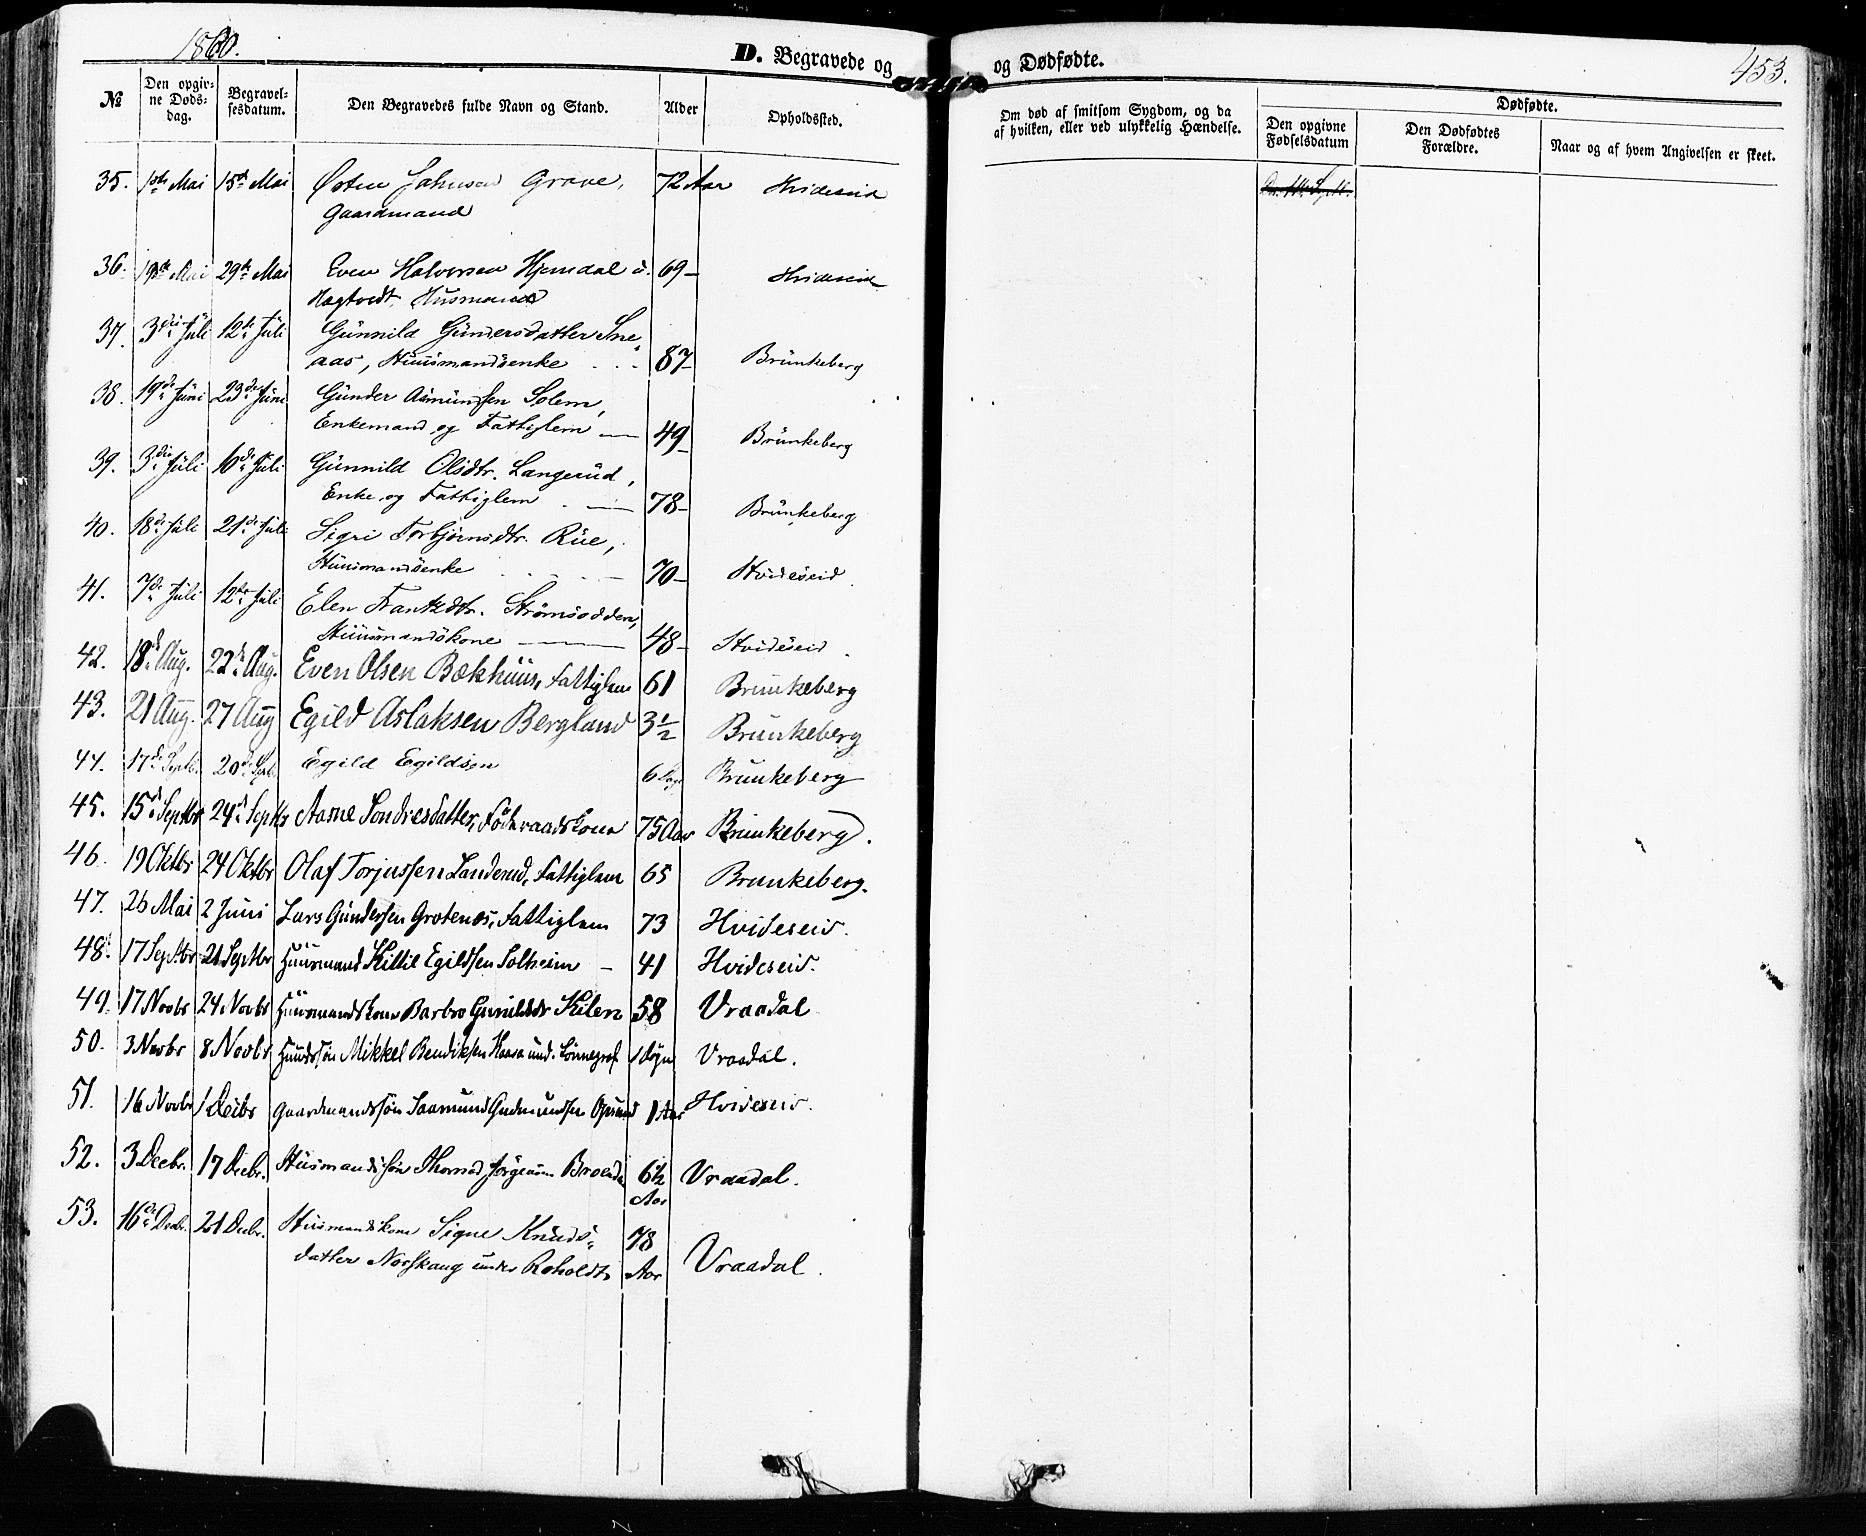 1860.
D. Begravede og
og Dødfødte.
453.
№
Den opgivne Døds-dag.
Begravelsesdatum.
Den Begravedes fulde Navn og Stand.
Alder
Opholdssted.
Om død af smitsom Sygdom, og da af hvilken, eller ved ulykkelig Hændelse.
Dødfødte.
Den opgivne Fødselsdatum
Den Dødfødtes Forældre.
Naar og af hvem Angivelsen er skeet.
35. 1ste Mai 15de Mai Østen Johnsen Grave, 72 Aar Hvideseid
Gaardmand
36. 19de Mai 29de Mai Even Halvorsen Hjemdal u. 69 Hvideseid
Hagtvedt. Husmand
37. 3die Juli 12te Juli Gunnild Gundersdatter Sne-
aas, Huusmandsenke 87 Brunkeberg
38. 19de Juni 23de Juni Gunder Asmundsen Solem,
Enkemand og Fattiglem 49 Brunkeberg
39. 3die Juli 10de Juli Gunnild Olsdtr. Langerud,
Enke og Fattiglem 78 Brunkeberg
40. 18de Juli 21de Juli Sigri Torbjørnsdtr. Rue,
Huusmandsenke 70 Hvideseid
41. 7de Juli 12te Juli Elen Frantzdtr. Strømsodden,
Huusmandskone 48 Hvideseid
42. 18de Aug. 22de Aug. Even Olsen Bækhuus, Fattiglem 61 Brunkeberg
43. 21 Aug. 27 Aug Egild Aslaksen Bergland 3½ Brunkeberg
44. 17de Septb. 20de Septb. Egild Egildsen 6 Dage Brunkeberg
45. 15de Septbr 24de Septbr Aasne Sondresdatter, Föderaadskone 75 Aar Brunkeberg.
46. 19 Oktbr 24 Oktbr Olaf Torjussen Landerud, Fattiglem 65 Brunkeberg.
47. 26 Mai 2 Juni Lars Gundersen Grotenæs, Fattiglem 73 Hvideseid.
48. 17 Septbr 21 Septbr Huusmand Kittil Egildsen Solheim 41 Hvideseid.
49. 17 Novbr 24 Novbr Huusmandskone Barbro Gunildsdtr Kilen 58 Vraadal
50. 3 Novbr 8 Novbr Huusmdssön Mikkel Bendiksen Kaasa und. Lönnegraf 1 Døgn Vraadal.
51. 16 Novbr 1 Decbr Gaardmandssön Saamund Gudmundsen Opsund 1 Aar Hvideseid.
52. 3 Decbr. 17 Decbr. Husmandssøn Thomas Jørgensen 6½ Aar Vraadal.
53. 16de Decbr. 21 Decbr. Husmandskone Signe Knuds-
datter Norskaug under Roholdt 78 Aar Vraadal.